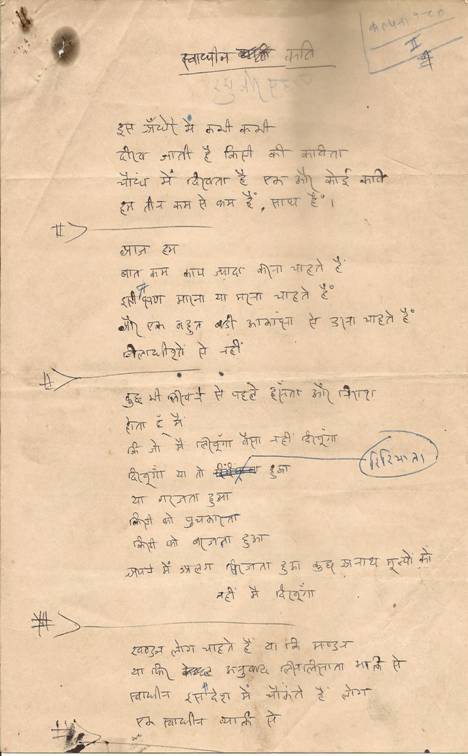 कल्पना
II
स्वाधीन व्यक्ति
रघुवीर सहाय
इस अँधेरे में कभी कभी
दीख जाती है किसी की कविता
चौंध में दिखता है एक और कोई कवि
हम तीन कम से कम हैं, साथ हैं।
#
आज हम
बात कम काम ज्यादा करना चाहते हैं
इसी क्षण मारना या मरना चाहते हैं
और एक बहुत बड़ी आकांक्षा से डरना चाहते हैं
जिलाधीशों से नहीं
#
कुछ भी लिखने से पहले हँसता और निराश
होता हूँ मैं
कि जो मैं लिखूँगा वैसा नहीं दिखूँगा
दिखूँगा या तो हुआ
रिरियाता
या गरजता हुआ
किसी को पुचकारता
किसी को बरजता हुआ
अपने में अलग सिरजता हुआ कुछ अनाथ मूल्यों को
नहीं मैं दिखूँगा
#
खण्डन लोग चाहते हैं या कि मण्डन
या फिर अनुवाद लिसलिसाता भक्ति से
स्वाधीन इस देश में चौंकते हैं लोग
एक स्वाधीन व्यक्ति से
#